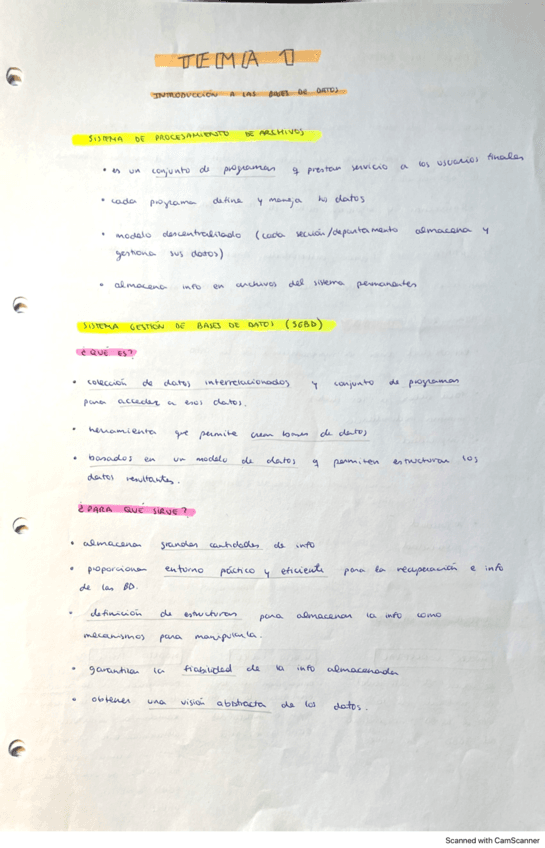 TEMA 1
INTRODUCCIÓN A LAS BASES DE DATOS
SISTEMA DE PROCESAMIENTO DE ARCHIVOS
• es un conjunto de programas q prestan servicio a los usuarios finales
• cada programa define y maneja sus datos
• modelo descentralizado (cada sección/departamento almacena y
gestiona sus datos)
• almacena info en archivos del sistema permanentes
SISTEMA GESTIÓN DE BASES DE DATOS (SGBD)
¿QUÉ ES?
• colección de datos interrelacionados y conjunto de programas
para acceder a esos datos.
• herramienta que permite crear bases de datos
• basados en un modelo de datos q permiten estructurar los
datos resultantes.
¿PARA QUÉ SIRVE?
• almacenar grandes cantidades de info
• proporcionar entorno práctico y eficiente para la recuperación e info
de las BD.
• definición de estructuras para almacenar la info como
mecanismos para manipularla.
• garantizar la fiabilidad de la info almacenada
• obtener una visión abstracta de los datos.
Scanned with CamScanner